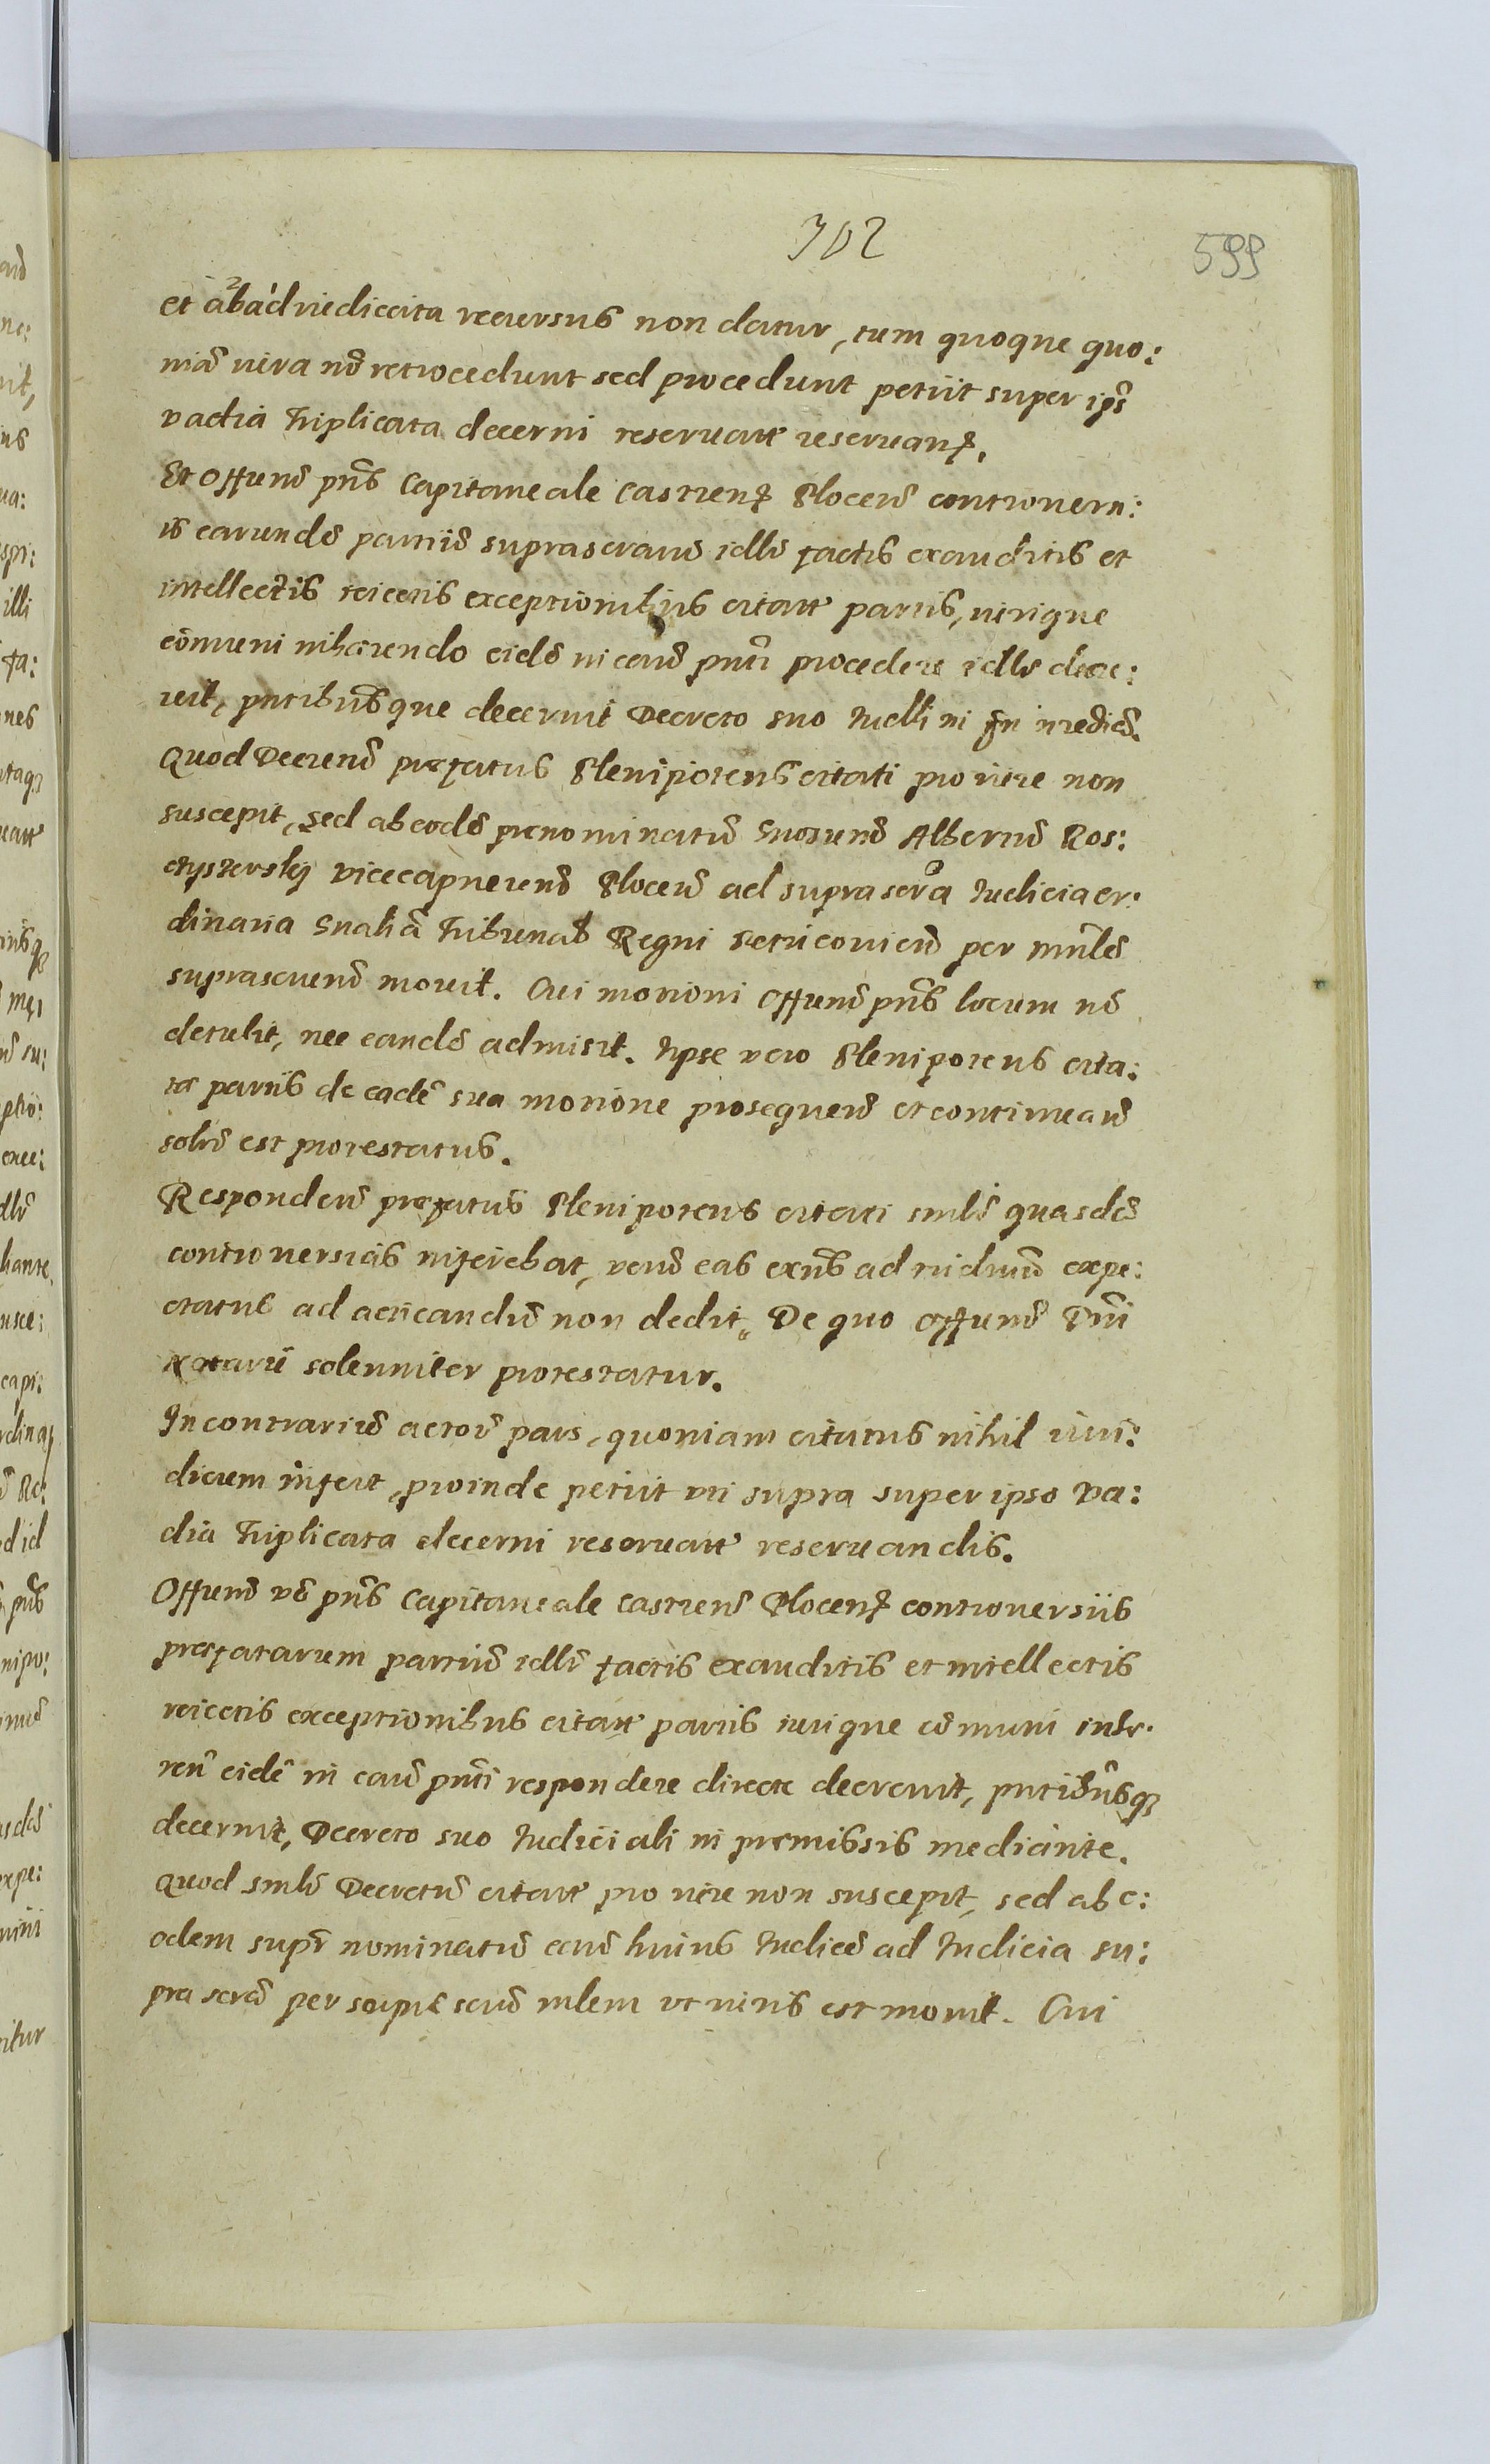 302
599
et ab adiudicata recursus non datur, tum quoque quo:
niã iura nõ retrocedunt sed procedunt petiit super ip̃s
vadia triplicata decerni reseruatt reseruanď.
Et Offinũ pñs Capitaneale Castrenß Plocen̄ controuersi:
is earundẽ partiũ suprascrãrũ idllr factis exauditis et
intellectis reiectis exceptionibus citatt partis, iurique
cõmuni inhærendo eidẽ in causã pñti procedere idllr decre:
uit, pñtibusque decernit Decreto suo Iudlli in
Quod Decretũ præfatus Plenipotens citati pro iure non
suscepit, sed ab eodẽ prænominatũ Gnosum̃ Albertũ Ros:
ciszewskj vicecapneum̃ Plocen̄ ad suprascrã Iudicia or:
dinaria Gnalia Tribunal̃ Regni Petricouien̄ per
suprascrũ mouit. Cui motioni Offinũ pñs locum nõ
detulit, nec eandẽ admisit. Ipse vero Plenipotens cita:
tæ partis de eadẽ sua motione prosequen̄ et continuan̄
solñr est protestatus.
Respondeñ præfatus Plenipotens citati smlr̃ quasdã
controuersias inferebat, verũ eas exñs ad triduũ expe:
ctatus ad acticandũ non dedit. De quo Offinũ Dñi
Notarii solenniter protestatur.
In contrariũ actoř pars, quoniam citatus nihil iuri:
dicum infert, proinde petiit vti supra super ipso va:
dia triplicata decerni reseruatt reseruandis.
Offinũ vẽ pñs Capitaneale Castreñ Plocenß controuersiis
præfatarum partiũ idllr factis exauditis et intellectis
reiectis exceptionibus citatt partis iurique cõmuni inhæ:
reñ eidẽ in causã pñti respondere directe decreuit, pñtibusq3
decernit, Decreto suo Iudiciali in præmissis mediante.
Quod smlr̃ Decretũ citatt pro iure non suscepit, sed ab e:
odem supr̃ nominatũ eiusd̃ huius Iudicẽ ad Iudicia su:
pra scrã per ut iuris est mouit. Cui